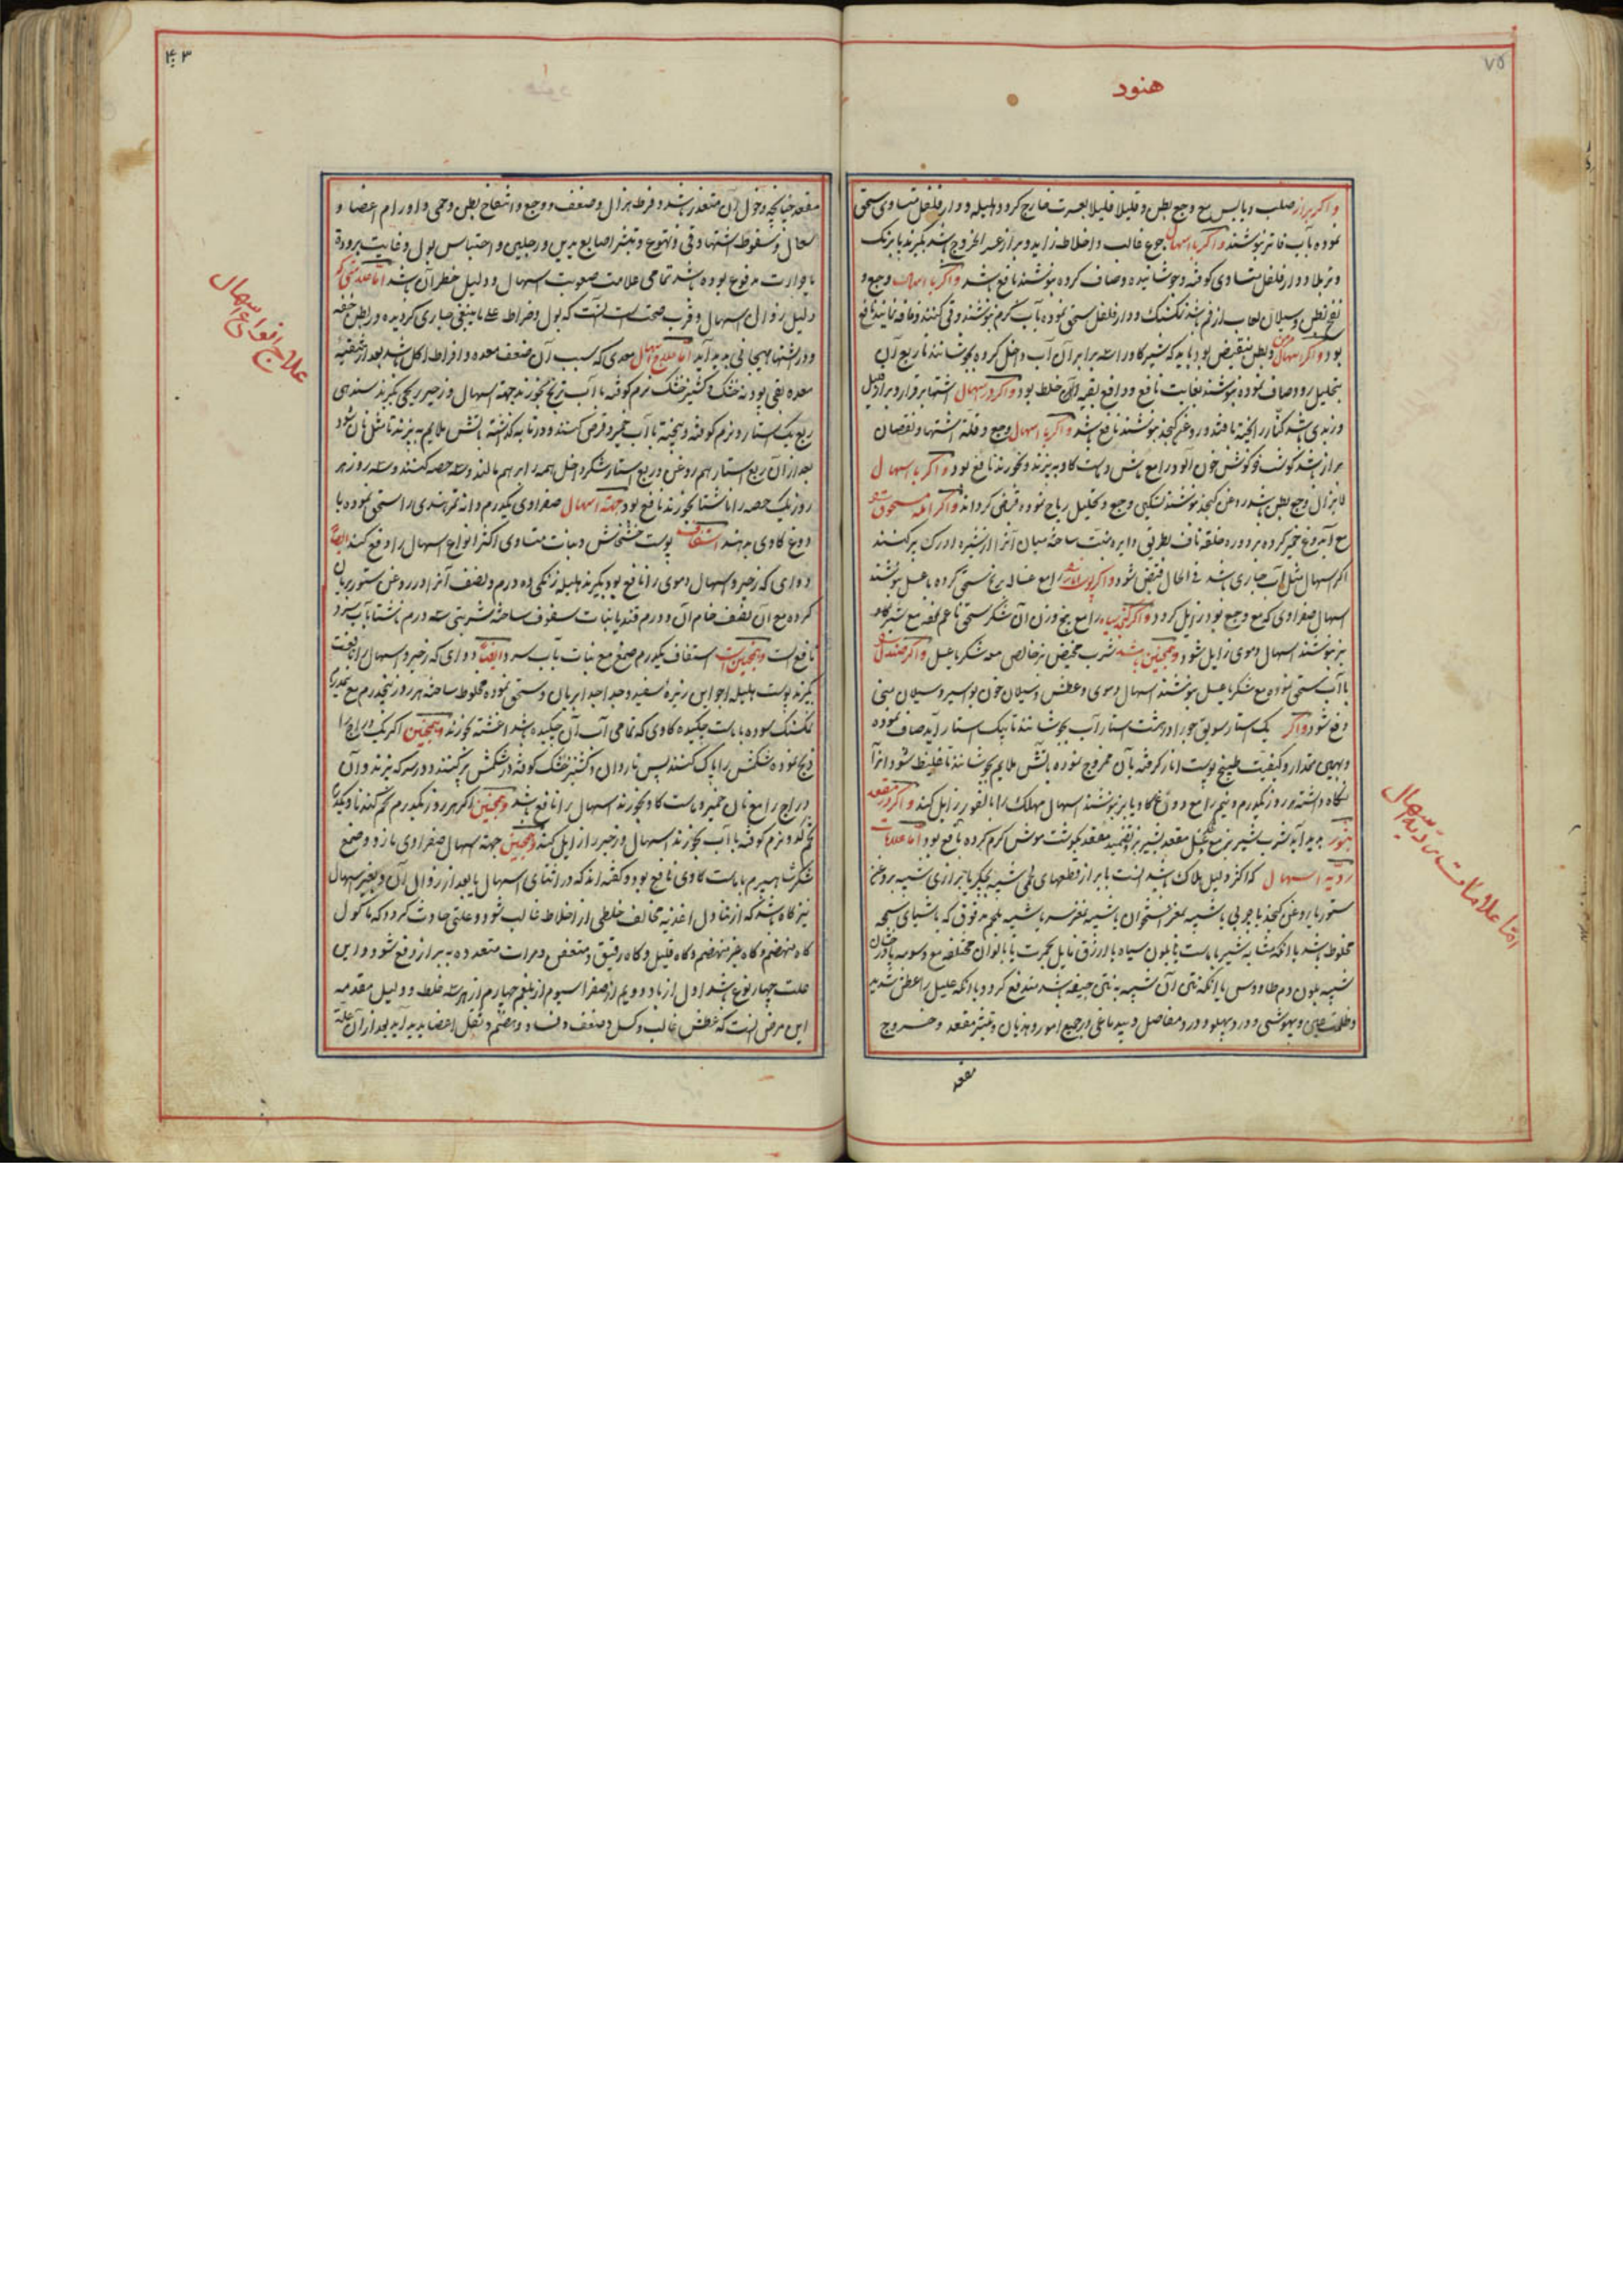 هنود
۷۵
واکر براز صلب و یابس مع وجع بطن و قلیلا قلیلا بعسرت خارج کردد هلیله و دارفلفل متساوی سحق
نموده بآب فاتر نوشند واکر با اسهال جوع غالب و اخلاط زاید و براز عسر الخروج باشد بکیرند بابرنک
و تربلا و دارفلفل متساوی کوفته و جوشانیده و صاف کرده نوشند نافع باشد واکر با اسهال وجع و
نفخ بطن و سیلان لعاب از فم باشد و دارفلفل سحق نموده بآب کرم نوشند و قی کنند
بود واکر بطن منقبض بود باید که شیر کاو را سه برابر آن آب داخل کرده بجوشانند تا ربع آن
بتحلیل رود و صاف نموده نوشند بغایت نافع و دافع بقیه خلط بود واکر در اسهال اشتها برقرار و براز قلیل
نافع باشد واکر با اسهال وجع و قلة اشتها و نقصان
براز باشد کوشت خرکوش خون آلود را مع ماست کاو به پزند و بخورند نافع بود واکر با اسهال
هزال و وجع بطن باشد روغن کنجد نوشند تسکین وجع و تحلیل ریاح نموده قبض کرداند واکر آمله مسحوق
مع آب خمیر کرده بر دوره حلقه ناف بطریق دایره مثبت ساخته میان آنرا از شیره ادرک پر کنند
اکر اسهال مثل آب جاری باشد فی الحال قبض شود واکر مع غساله برنج سحق کرده با عسل نوشند
اسهال صفراوی که مع وجع بود زایل کردد واکر کنجد سیاه را مع پنج وزن آن شکر سحق ناعم نموده مع شیر کاو
نوشند اسهال دموی زایل شود وهمچنین باشد شرب مخیض خالص معه شکر یا عسل واکر صندل
با آب سحق نموده مع شکر یا عسل نوشند اسهال دموی و عطش و سیلان خون بواسیر و سیلان منی
دفع شود واکر یک استار سویق جو را در هشت استار آب بجوشانند تا یک استار آید صاف نموده
و بهمین مقدار و کیفیت طبیخ پوست انار کرفته بآن ممزوج نموده بآتش ملایم بجوشانند تا غلیظ شود آنرا
نکاه داشته هر روز یکدرم و نیم را مع دوغ کاو نوشند اسهال مهلک را بالفور زایل کند واکر در مقعد
بثور پدید آید شرب شیر بز مع عسل و غسل مقعد بشیر بز و تضمید مقعد بکوشت موش کرم کرده نافع بود اما علامات
ردیه اسهال که اکثر دلیل هلاک باشد آنست یا براز قطعهای شبیه بجکر یا براز شبیه بروغن
ستور یا روغن کنجد یا چربی یا شبیه بمغز استخوان یا شبیه بمغز سر یا شبیه بلحم مدقوق که باشیای
مخلوط باشد یا آنکه مشابه به شیر یا ماست یا بلون سیاه یا ازرق مایل بحمرت یا بالوان مختلفه
شبیه بلون دم طاووس یا آنکه نتن آن شبیه به نتن جیفه باشد مندفع کردد یا آنکه علیل را عطش شدید
و ظلمت و بیهوشی و درد پهلو و درد مفاصل و بیدماغی در جمیع امور و هذیان و تبثر مقعد و خروج
مقعد
اما علامات ردیه اسهال
۴۰۳
مقعد چنانچه دخول آن متعذر باشد و فرط هزال و ضعف و وجع و انتفاخ بطن و حمی و اورام اعضا و
سعال و سقوط اشتها و قی و تهوع و تبثر اصابع یدین و رجلین و احتباس بول و غایت برودة
یا حرارت مدفوع بوده باشد تمامی علامت صعوبت اسهال و دلیل خطر آن باشد اما علامتی که
دلیل زوال اسهال و قرب صحت است آنست که بول و ضراط علی ماینبغی جاری کردیده در بطن خفه
و در اشتها هیجانی پدید آید اما علاج اسهال معدی که سبب آن ضعف معده و افراط اکل باشد بعد از تنقیه
معده بقی بود خشک و کشنیز خشک نرم کوفته با آب ترنج بخورند جهة اسهال و زحیر ریحی بکیرند سندهی
ربع یک استار و نرم کوفته و بیخته با آب خمیر و قرص کنند و در تابه کذاشته بآتش ملایم به پزند تا مثل نان شود
بعد از آن ربع استار هم روغن و ربع استار شکر داخل همه را بر هم مالند و سه حصه کنند و سه روز هر
روز یک حصه را ناشتا بخورند نافع بود جهة اسهال صفراوی یکدرم دانه تمر هندی را سحق نموده با
دوغ کاوی بدهند استفاف پوست خشخاش و نبات متساوی اکثر انواع اسهال را دفع کند ایضاً
دوای که زحیر و اسهال دموی را نافع بود بکیرند هلیله زنکی ده درم و نصف آنرا در روغن ستور بریان
کرده مع آن نصف خام آن و دو درم قند یا نبات سفوف ساخته شربتی سه درم ناشتا بآب سرد
نافع است وهمچنین است استفاف یکدرم صمغ مع نبات بآب سرد ایضاً دوای که زحیر و اسهال را نافعست
بکیرند پوست هلیله اجواین زیره سفید و جدا جدا بریان و سحق نموده مخلوط ساخته هر روز پنجدرم مع
نمکسنک سوده با ماست چکیده کاوی که تمامی آب آن چکیده باشد اغشته بخورند وهمچنین اکر یک دراج را
ذبح نموده شکمش را پاک کنند پس ناردان و کشنیز خشک کوفته در شکمش پر کنند و در سرکه پزند و آن
دراج را مع نان خمیر و ماست کاو بخورند اسهال را نافع باشد وهمچنین اکر هر روز یکدرم تخم کندنا و یکدرم
نرم کوفته با آب بخورند اسهال و زحیر را زایل کند وهمچنین جهة اسهال صفراوی مازو و صمغ
شکر تیهال با ماست کاوی نافع بود و کفته اند که در اثنای اسهال یا بعد از زوال آن و بغیر اسهال
نیز کاه باشد که از تناول اغذیه مخالف خلطی از اخلاط غالب شود و علتی حادث کردد که ماکول
کاه منهضم و کاه غیر منهضم و کاه قلیل و کاه رقیق و متعفن و مرات متعدده به براز دفع شود و این
علت چهار نوع باشد اول از باد دویم از صفرا سیوم از بلغم چهارم از هر سه خلط و دلیل مقدمه
این مرض آنست که عطش غالب و کسل و ضعف و فساد هضم و ثقل اعضا پدید آید بعد از آن علة
علاج انواع اسهال